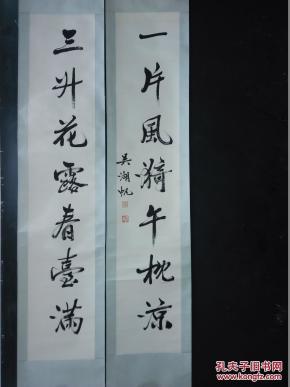 一片風漪午枕涼
吳湖帆
三升花露春臺滿
孔夫子旧书网